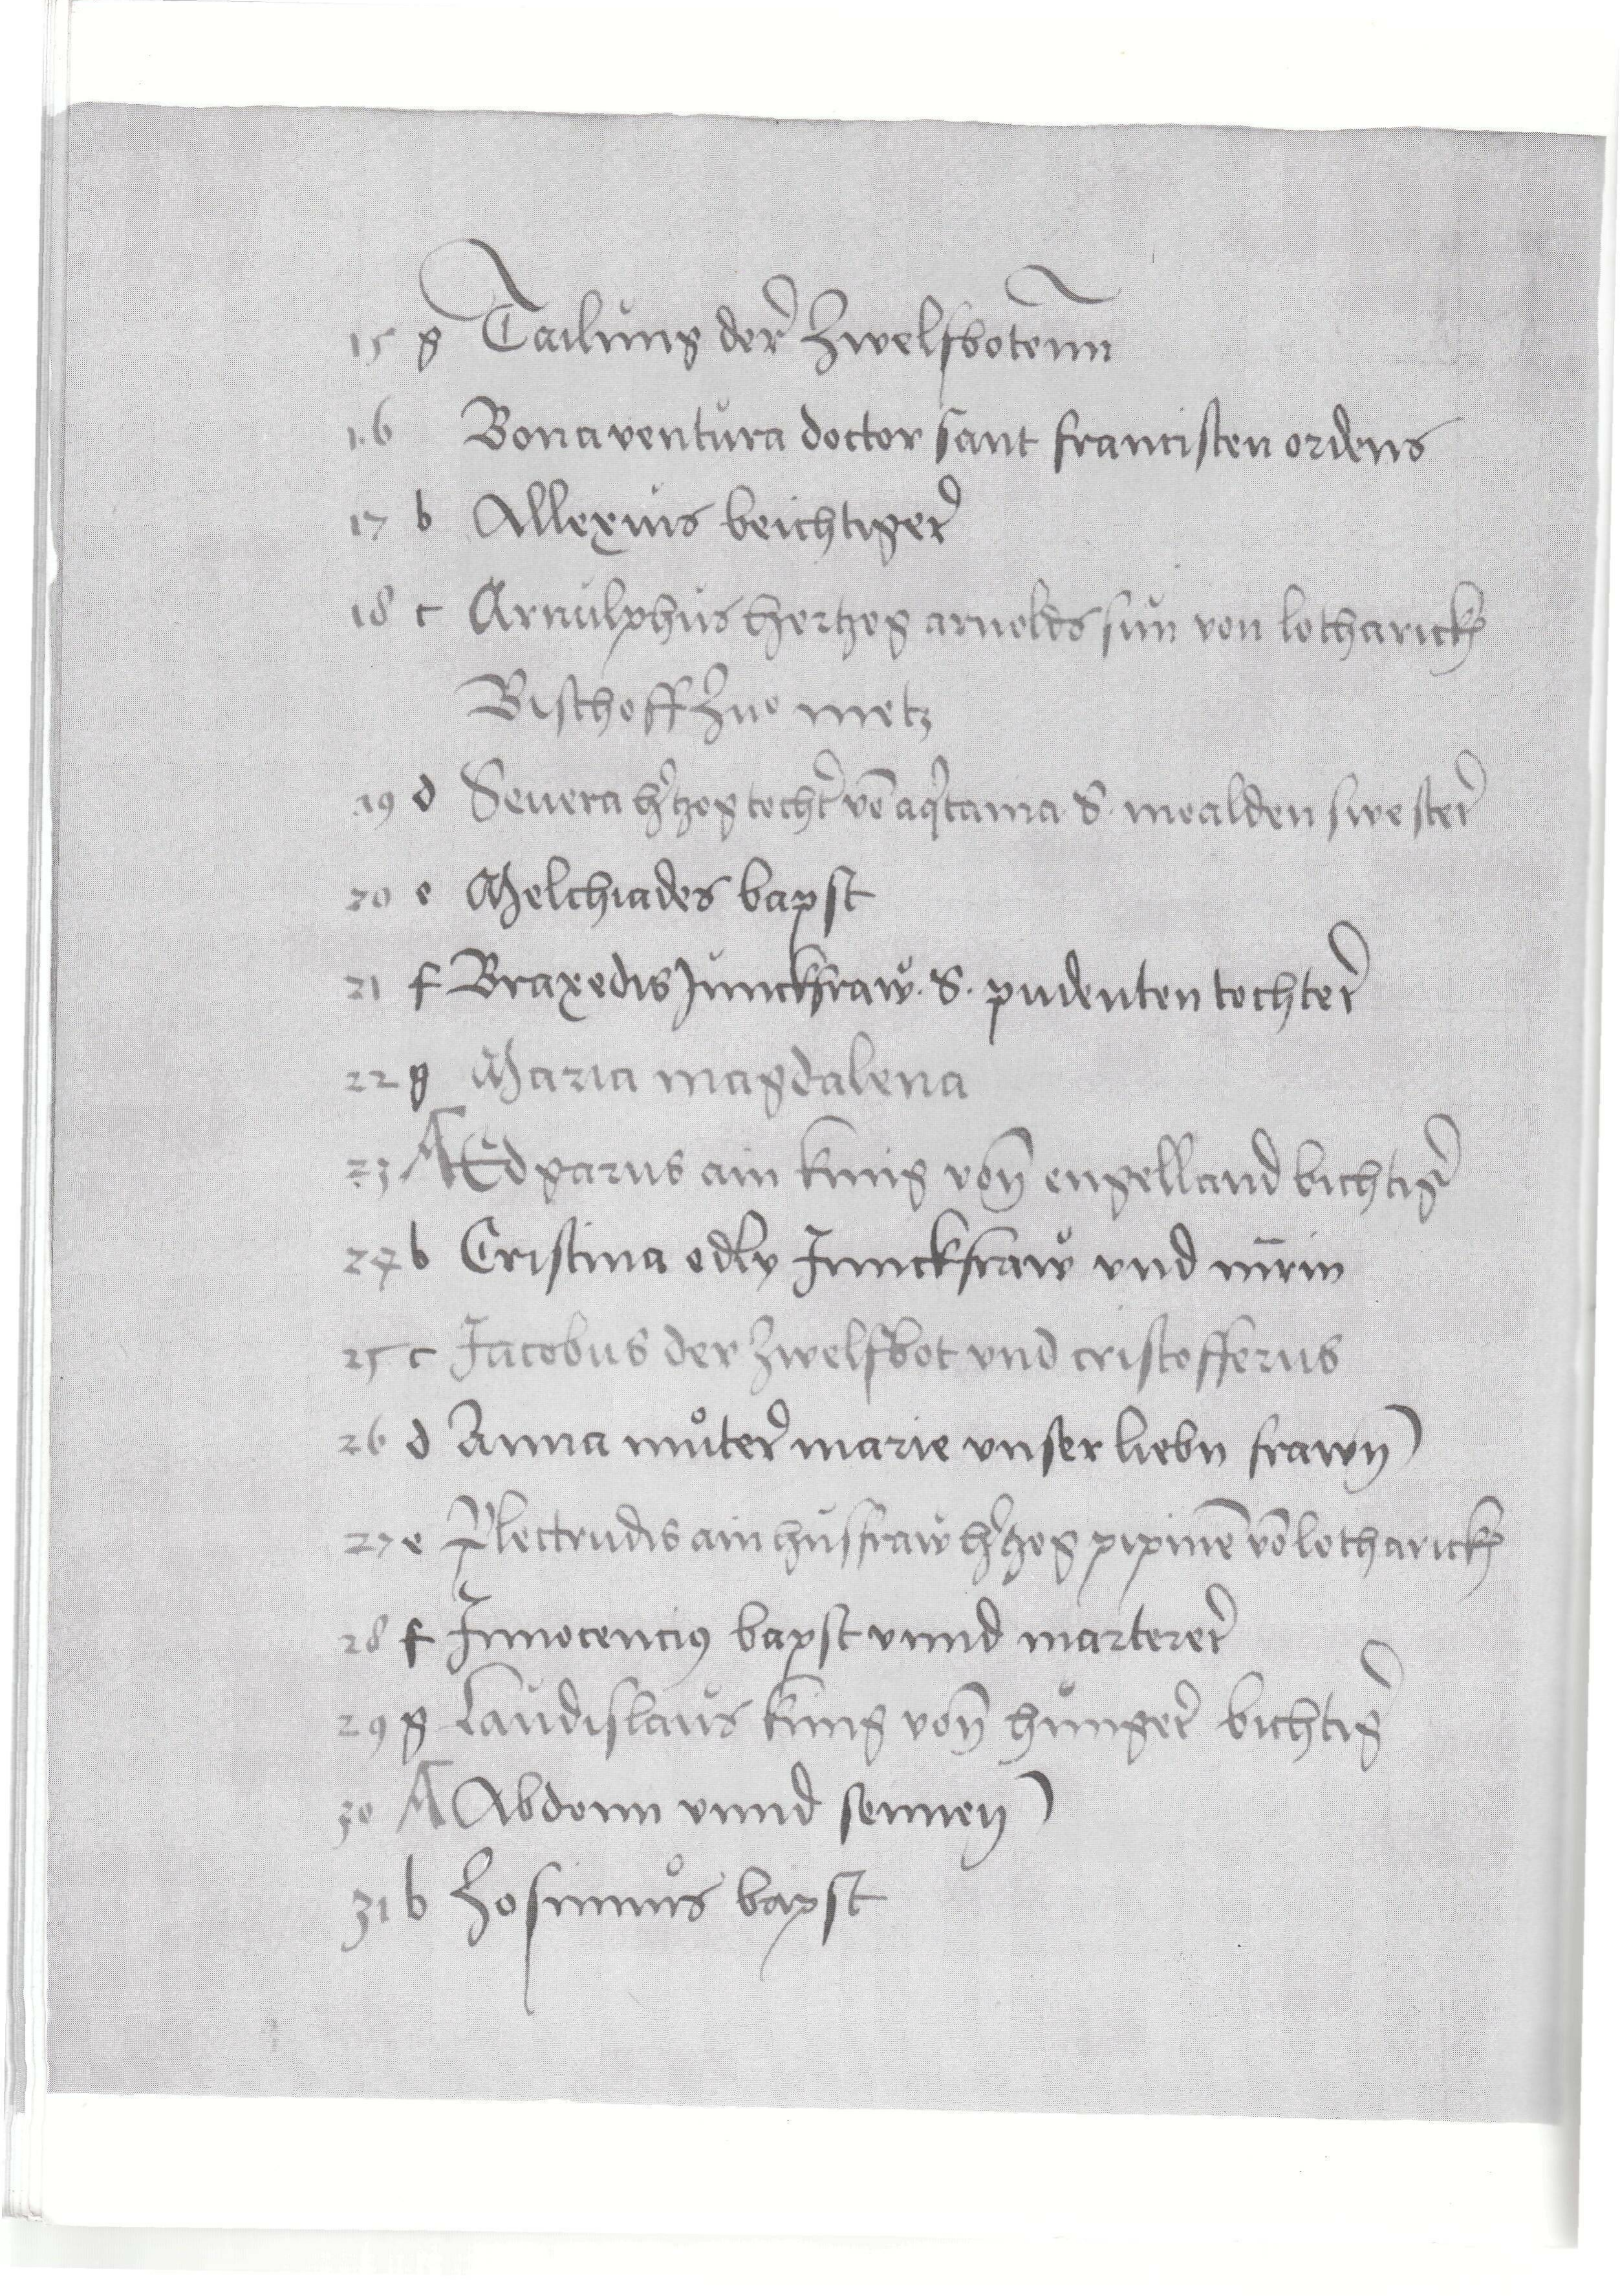 15 g Tailung der Zwelfbotenn
16 Bonaventura doctor sant francisten ordens
17 b Allexius beichtiger
18 c Arnulphus hertzog arnolds sun von lotharick
Bischoff zuo metz
19 d Seuera h'tzog tocht' vō aq'tania S. moalden swester
20 e Melchiades bapst
21 f Braxedis Junckfraw. S. pudenten tochter
22 g Maria magdalena
23 A Edgarus ain kunig von engelland bichtig'
24 b Cristina edly Junckfraw vnd mrin
25 c Jacobus der Zwelfbot vnd cristofferus
26 d Anna můter marie vnser liebn frawn
27 e Plectrudis ain husfraw h'tzog pipinē vō lotharick
28 f Innocencius bapst vnnd marterer
29 g Laudislaus kunig von hunger bichtig'
30 A Abdonn vnnd sennen
31 b Zosimus bapst